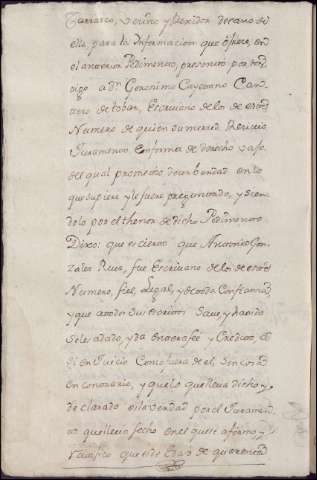 vecino y
ella, para la Informacion que ofrece, en
el anterior Pedimento, presentó por tes
tigo a Dn. Geronimo Cayetano Can
tero de tobar, Escrivano de los de este
Numero de quien su merced Recivio
Juramento en forma de derecho vajo
del qual prometio decir berdad en lo
que supiere y le fuere preguntado, y sien
dolo por el thenor de dicho Pedimento
Dixo: que es cierto que Antonio Gon
zales Ruiz, fue Escrivano de los de este
Numero, fiel, Legal, y de toda Confianza
y que a todos sus escritos Save, y ha sido
sele a dado, y da entera fee y Credito, a
si en Juicio Como fuera de el, sin cosa
en contrario, y que lo que lleva dicho y
declarado es la verdad por el Jurament
to que lleva fecho en el que se afirmo, y
Ratifico que es de edad de quarenta